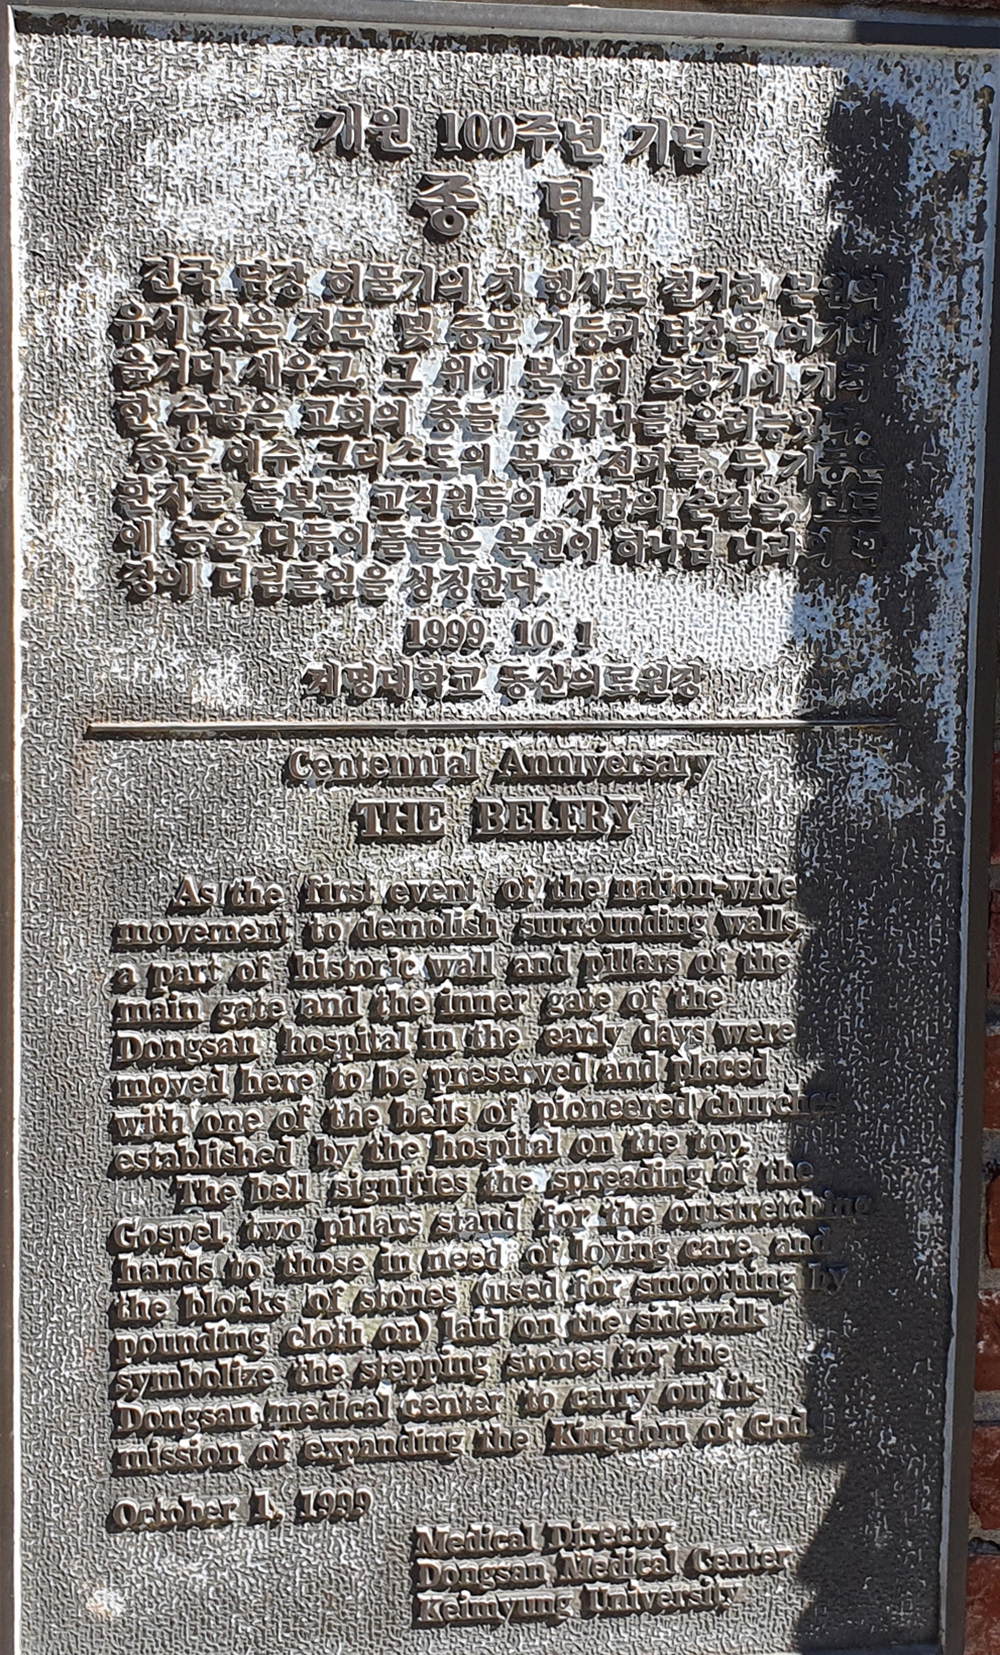 개원 100주년 기념
종 탑
전국 담장 허물기의 첫 행사로 철거한 본원의
유서 깊은 정문 및 중문 기둥과 담장을 여기에
옮겨다 세우고, 그 위에 본원의 초창기에 개척
한 수많은 교회의 종들 중 하나를 올려놓았다.
종은 예수 그리스도의 복음 전파를, 두 기둥은
환자를 돌보는 교직원들의 사랑의 손길을, 보도
에 놓은 다듬이돌들은 본원이 하나님 나라의 확
장에 디딤돌임을 상징한다.
1999. 10. 1
계명대학교 동산의료원장
Centennial Anniversary
THE BELFRY
As the first event of the nation-wide
movement to demolish surrounding walls,
a part of historic wall and pillars of the
main gate and the inner gate of the
Dongsan hospital in the early days were
moved here to be preserved and placed
with one of the bells of pioneered churches
established by the hospital on the top.
The bell signifies the spreading of the
Gospel, two pillars stand for the outstretching
hands to those in need of loving care, and
the blocks of stones (used for smoothing by
pounding cloth on) laid on the sidewalk
symbolize the stepping stones for the
Dongsan medical center to carry out its
mission of expanding the Kingdom of God
October 1, 1999
Medical Director
Dongsan Medical Center
Keimyung University